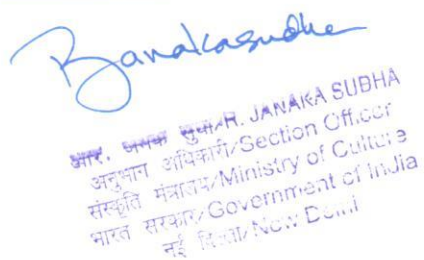 R. Janakasudha
आर. जनक सुधा/R. JANAKA SUBHA
अनुभाग अधिकारी/Section Officer
संस्कृति मंत्रालय/Ministry of Culture
भारत सरकार/Government of India
नई दिल्ली/New Delhi